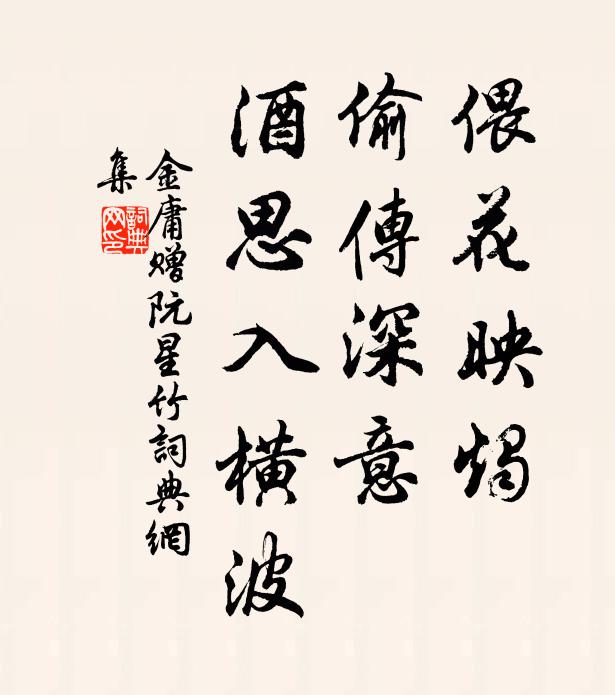 偎花映燭
偷傳深意
酒思入橫波
金庸赠阮星竹詞典網
集
詞典
网印